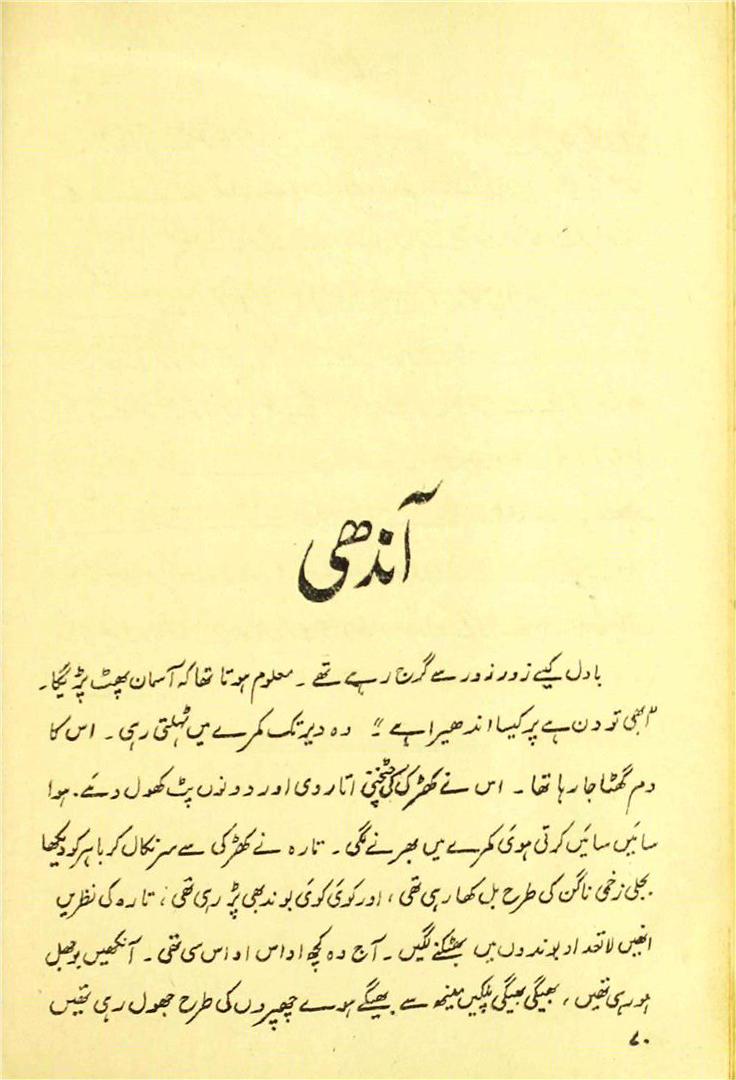 آندھی
بادل کیسے زور زور سے گرج رہے تھے ۔ معلوم ہوتا تھا کہ آسمان پھٹ پڑیگا ۔
"ابھی تو دن ہے پر کیسا اندھیرا ہے" وہ دیر تک کمرے میں ٹہلتی رہی ۔ اس کا
دم گھٹا جا رہا تھا ۔ اس نے کھڑکی کی چٹخنی اتار دی اور دونوں پٹ کھول دئے ۔ ہوا
سائیں سائیں کرتی ہوئی کمرے میں بھرنے لگی ۔ تارہ نے کھڑکی سے سر نکال کر باہر کو دیکھا
بجلی زخمی ناگن کی طرح بل کھا رہی تھی ، اور کوئی کوئی بوند بھی پڑ رہی تھی ، تارہ کی نظریں
انھیں لاتعداد بوندوں میں بھٹکنے لگیں ۔ آج وہ کچھ اداس اداس سی تھی ۔ آنکھیں بوجھل
ہو رہی تھیں ، بھیگی بھیگی پلکیں مینھ سے بھیگے ہوے چھپروں کی طرح جھول رہی تھیں
۷۰